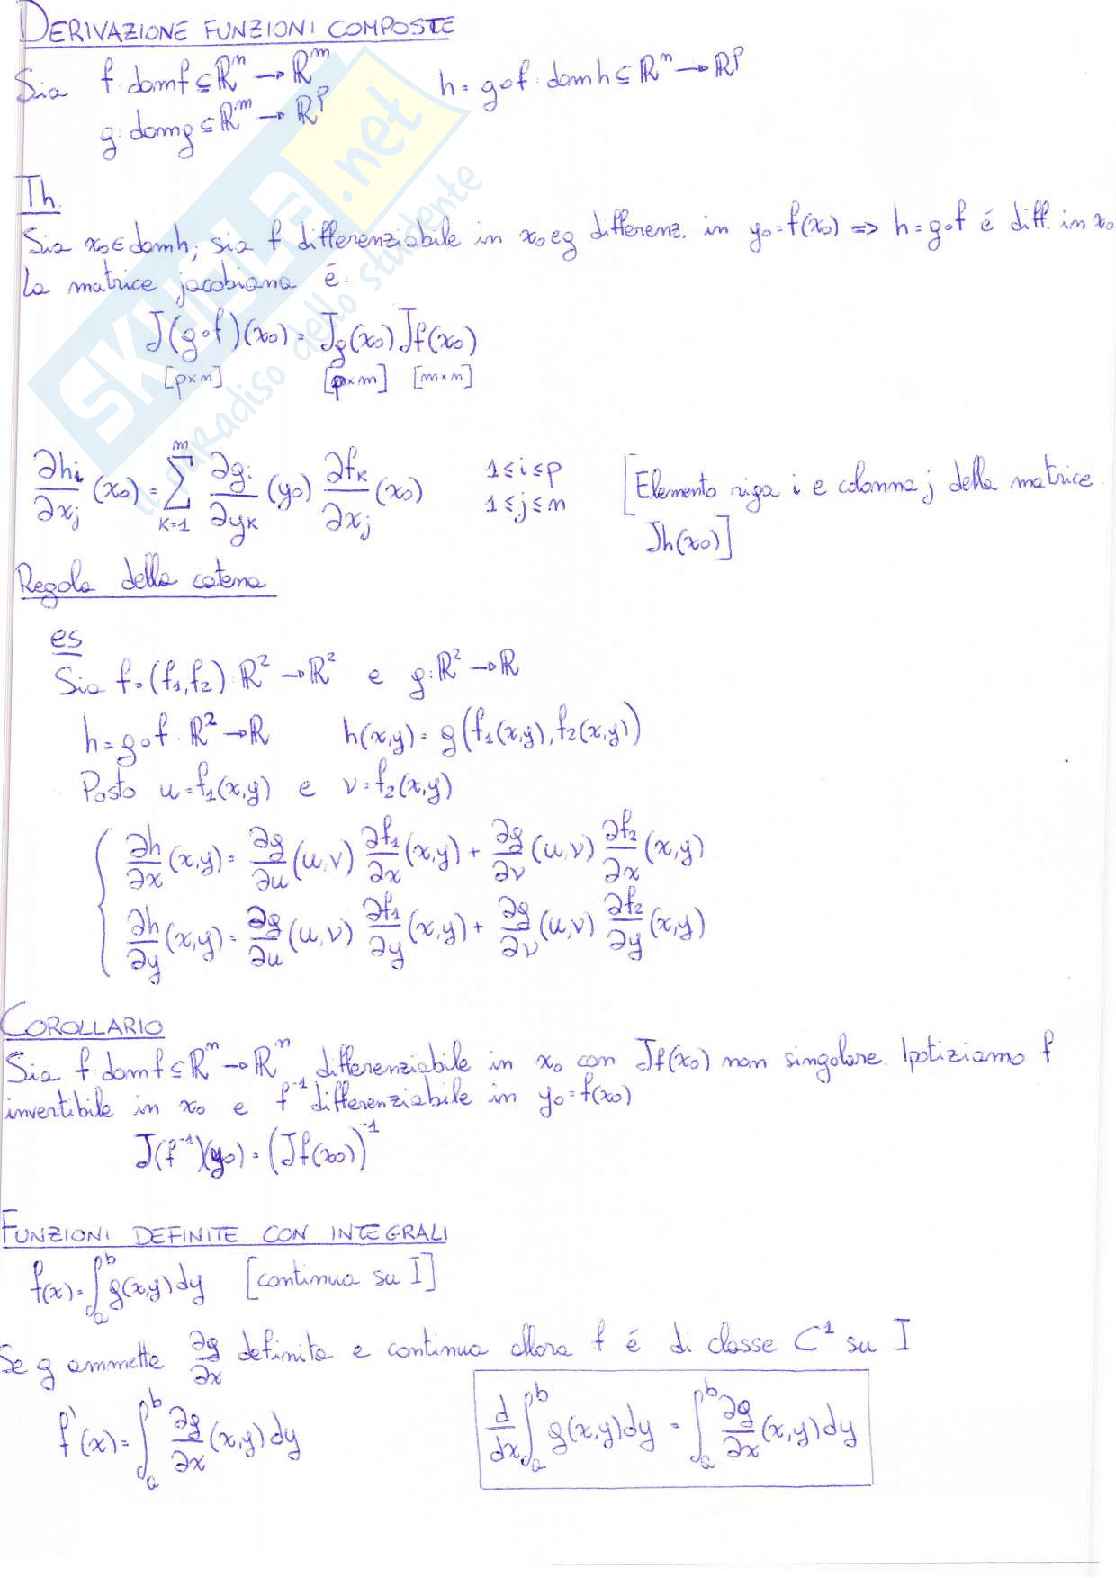 DERIVAZIONE FUNZIONI COMPOSTE
Sia f: domf ⊆ ℝⁿ → ℝᵐ h = g∘f: domh ⊆ ℝⁿ → ℝᵖ
g: domg ⊆ ℝᵐ → ℝᵖ
Th.
Sia x₀ ∈ domh; sia f differenziabile in x₀ e g differenz. in y₀ = f(x₀) => h = g∘f é diff. in x₀
La matrice jacobiana é
J(g∘f)(x₀) = Jg(x₀) Jf(x₀)
[p×n] [p×m] [m×n]
∂hᵢ/∂xⱼ (x₀) = ∑_{K=1}^{m} ∂gᵢ/∂y_K (y₀) ∂f_K/∂xⱼ (x₀) 1≤i≤p 1≤j≤n [Elemento riga i e colonna j della matrice
Jh(x₀)]
Regola della catena
es
Sia f = (f₁,f₂): ℝ² → ℝ² e g: ℝ² → ℝ
h = g∘f: ℝ² → ℝ h(x,y) = g(f₁(x,y), f₂(x,y))
Posto u = f₁(x,y) e v = f₂(x,y)
{ ∂h/∂x (x,y) = ∂g/∂u (u,v) ∂f₁/∂x (x,y) + ∂g/∂v (u,v) ∂f₂/∂x (x,y)
∂h/∂y (x,y) = ∂g/∂u (u,v) ∂f₁/∂y (x,y) + ∂g/∂v (u,v) ∂f₂/∂y (x,y)
COROLLARIO
Sia f domf ⊆ ℝⁿ → ℝⁿ differenziabile in x₀ con Jf(x₀) non singolare. Ipotiziamo f
invertibile in x₀ e f⁻¹ differenziabile in y₀ = f(x₀)
J(f⁻¹)(y₀) = (Jf(x₀))⁻¹
FUNZIONI DEFINITE CON INTEGRALI
f(x) = ∫ₐᵇ g(x,y) dy [continua su I]
Se g ammette ∂g/∂x definita e continua allora f é di classe C¹ su I
f'(x) = ∫ₐᵇ ∂g/∂x (x,y) dy d/dx ∫ₐᵇ g(x,y) dy = ∫ₐᵇ ∂g/∂x (x,y) dy
SKUOLA.net
il paradiso dello studente